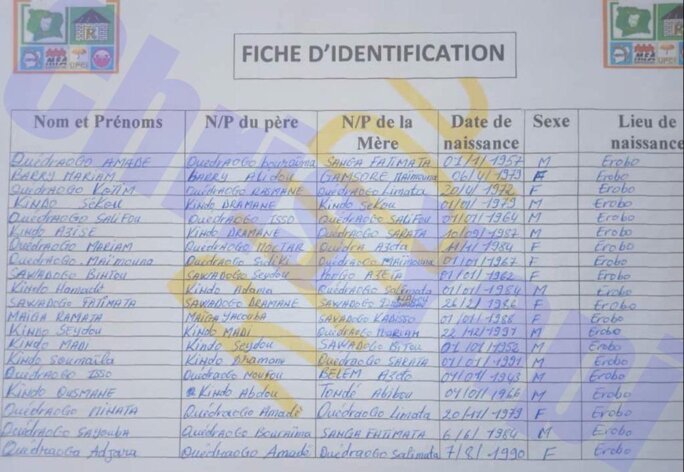 FICHE D'IDENTIFICATION
Nom et Prénoms N/P du père N/P de la Mère Date de naissance Sexe Lieu de naissance
OuédraoGo AMADE OuédraoGo bouraïma SANGA FATIMATA 01/1/1957 M Erobo
BARRY MARIAM BARRY Alidou GAMSORE Maimouna 06/4/1979 F Erobo
OuedraoGo OuédraoGo RASMANE OuédraoGo Limata 20/4/1972 F Erobo
KINDO Sékou Kindo DRAMANE Kindo Sékou 01/01/1979 M Erobo
OuédraoGo SALiFou OuédraoGo ISSO OuédraoGo SALiFou 01/01/1964 M Erobo
Kindo AZISE Kindo DRAMANE OuédraoGo SARATA 10/09/1987 M Erobo
OuédraoGo MARIAM OuédraoGo MOCTAR Azeta 11/11/1984 F Erobo
Ouédrao. Maimouna OuédraoGo SidiKi OuédraoGo Maimouna 01/01/1967 F Erobo
SAWADOGO BINTOU SAWADOGO Seydou AZETA 01/01/1962 F Erobo
Kindo Hamadé Kindo Adama OuédraoGo Salimata 01/01/1984 M Erobo
SAWADOGO FATIMATA SAWADOGO DRAMANE SAWADOGO 26/2/1986 F Erobo
MAIGA RAMATA MAIGA YACOUBA SAVADOGO KADISSO 01/01/1988 F Erobo
Kindo Seydou Kindo MADI OuédraoGo MARIAM 22/12/1997 M Erobo
Kindo MADI Kindo Seydou SAWADOGO BiTou 01/01/1952 M Erobo
Kindo Soumaïla Kindo Dramane OuédraoGo SARATA 01/01/1991 M Erobo
OuédraoGo ISSO OuédraoGo BELEM AZETO 01/01/1943 M Erobo
Kindo OUSMANE Kindo Abdou Tondé Abibou 01/01/1966 M Erobo
OuédraoGo MINATA OuédraoGo Amadé OuédraoGo Limata 20/11/1979 F Erobo
OuédraoGo SAyouba OuédraoGo Bouraïma SANGA FATIMATA 6/6/1984 M Erobo
Ouédraogo Adjara OuédraoGo Amadé OuédraoGo Salimata 7/8/1990 F Erobo